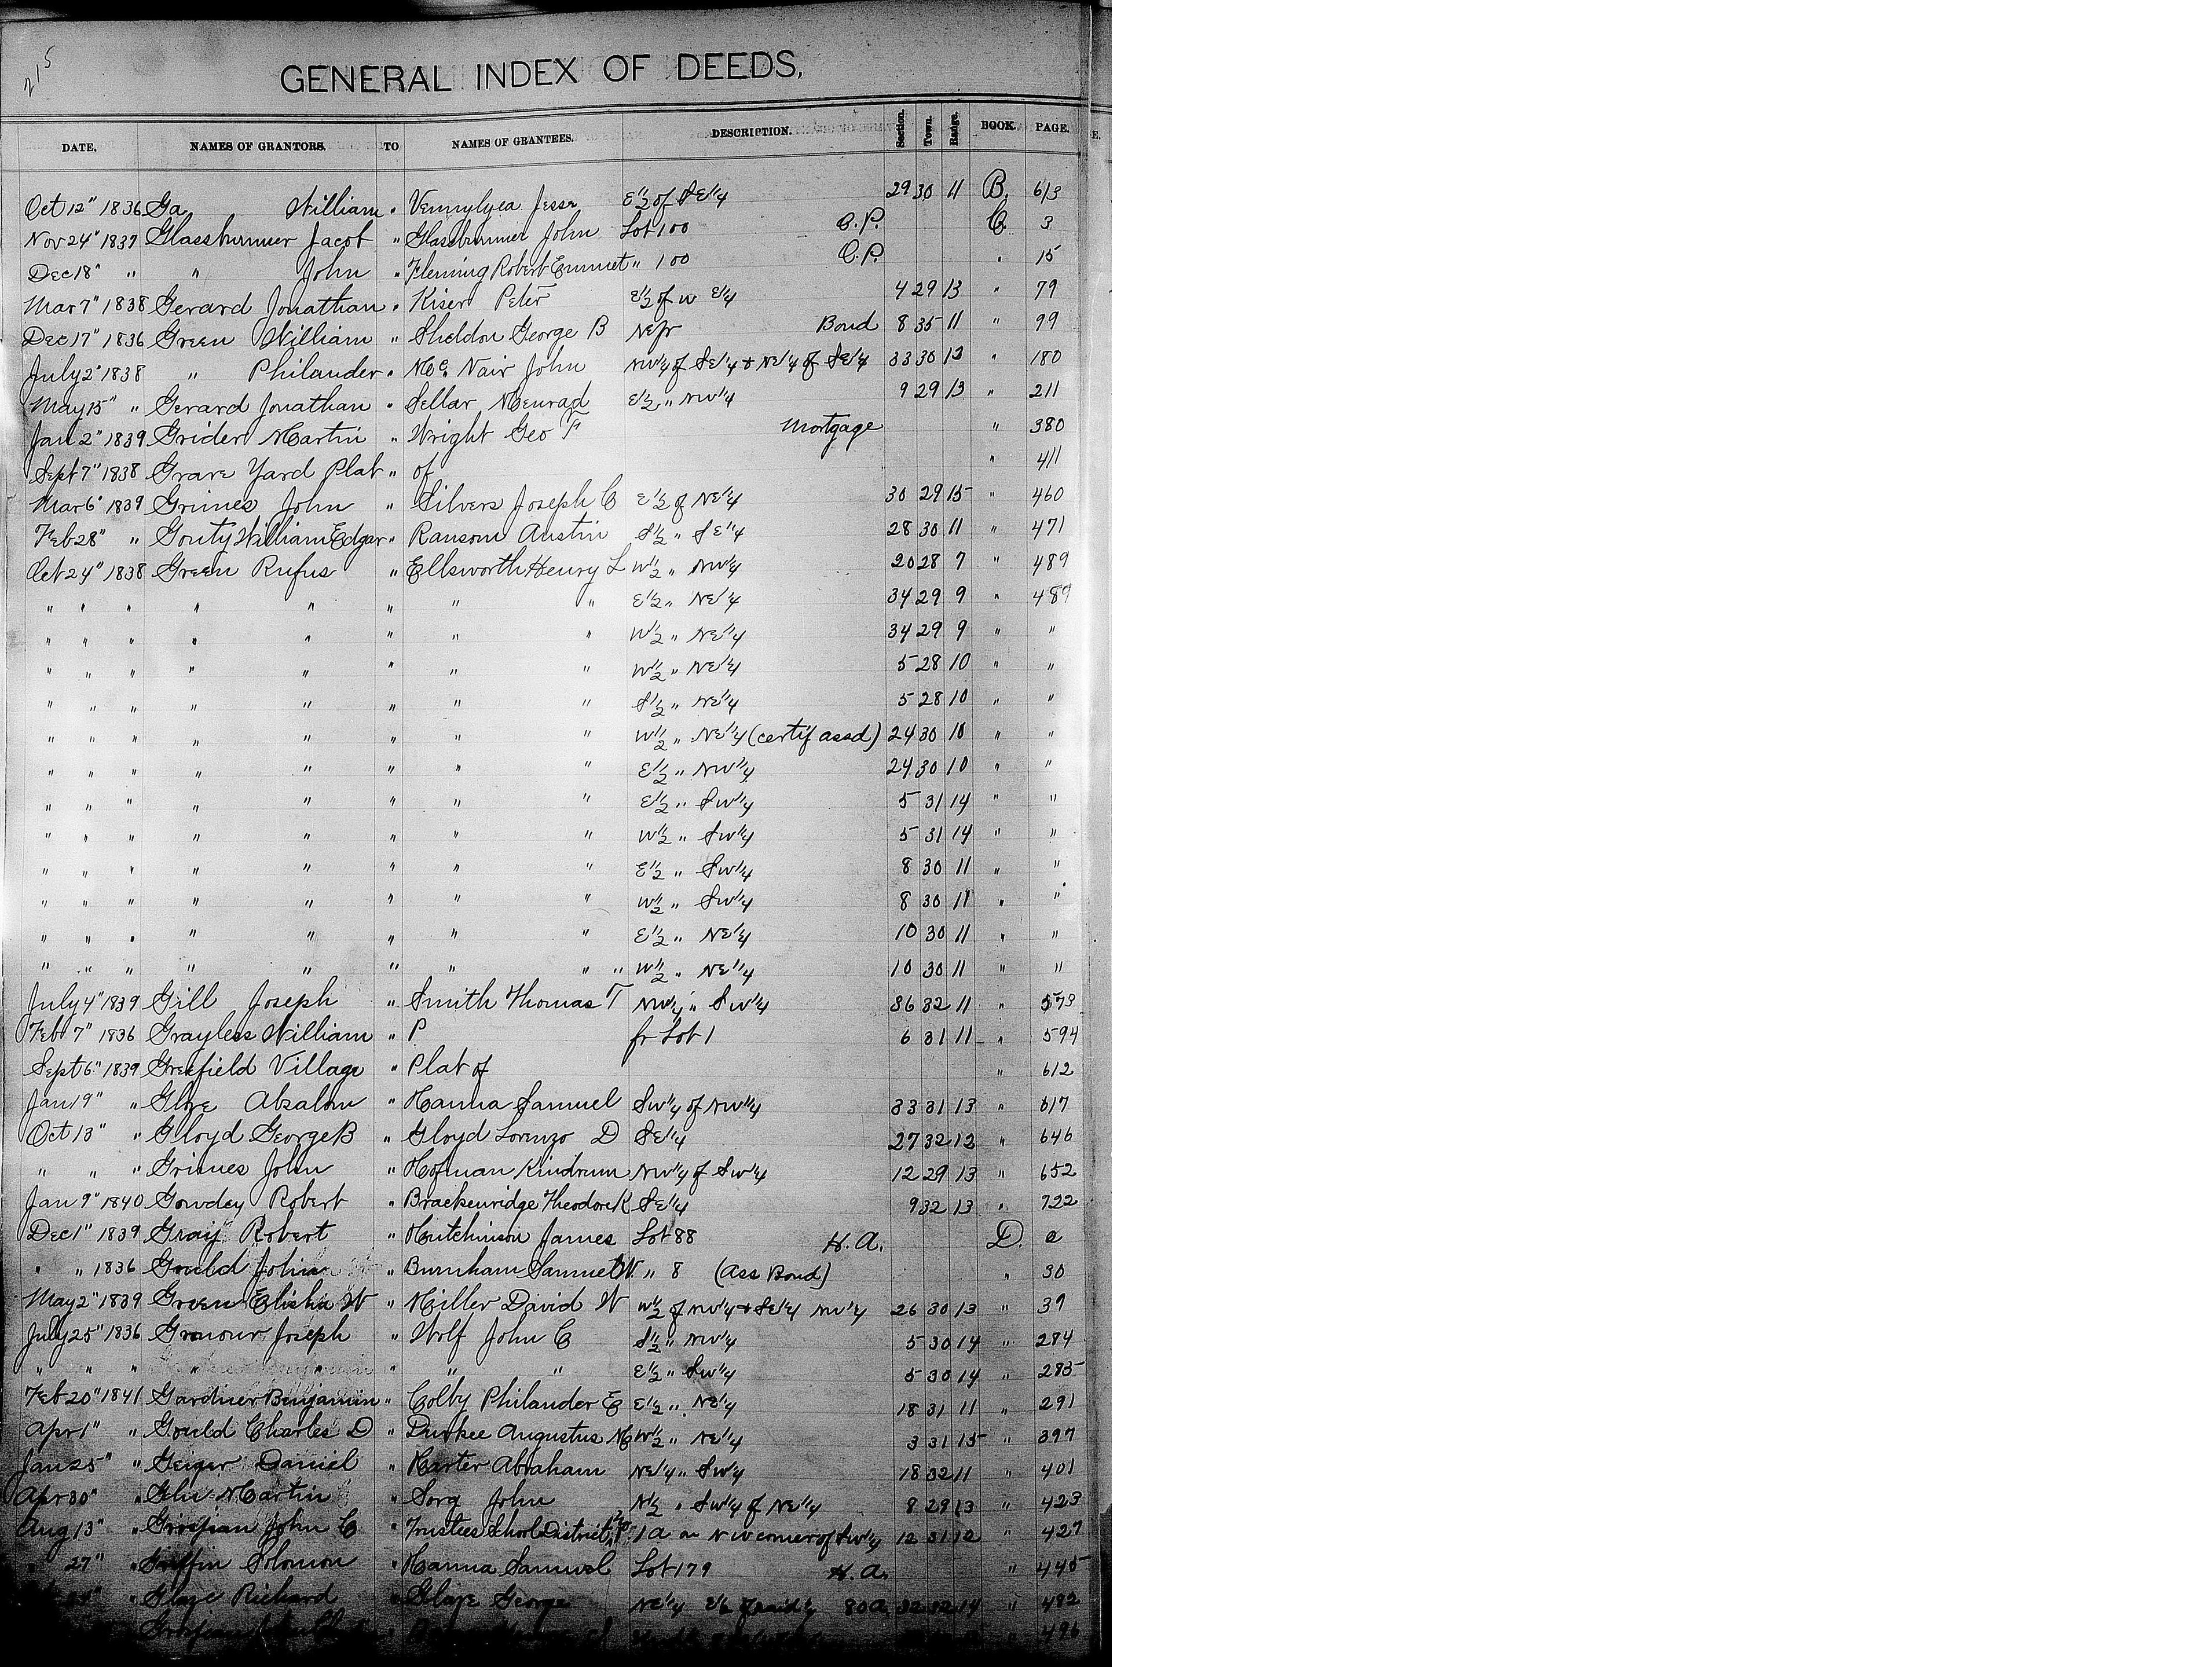 215
GENERAL INDEX OF DEEDS.
DATE. NAMES OF GRANTORS. TO NAMES OF GRANTEES. DESCRIPTION. Section. Town. Range. BOOK. PAGE.
Oct 12" 1836 Ga William " Vennylyea Jesse E 1/2 of SE 1/4 29 30 11 B. 613
Nov 24" 1837 Glassbrunner Jacob " Glassbrunner John Lot 100 O.P. C. 3
Dec 18" " " John " Fleming Robert Emmet " 100 O.P. " 15
Mar 7" 1838 Gerard Jonathan " Kiser Peter E 1/2 of W E 1/4 4 29 13 " 79
Dec 17" 1836 Green William " Sheldon George B NEfr Bond 8 35 11 " 99
July 2" 1838 " Philander " Mc. Nair John NW 1/4 of SE 1/4 & NE 1/4 of SE 1/4 33 30 12 " 180
May 15" " Gerard Jonathan " Sellar Menrad E 1/2 " NW 1/4 9 29 13 " 211
Jan 2" 1839 Grider Martin " Wright Geo F Mortgage " 380
Sept 7" 1838 Grave Yard Plat " of " 411
Mar 6" 1839 Grimes John " Silvers Joseph C E 1/2 of NE 1/4 30 29 15 " 460
Feb 28" " Gouty William Edgar " Ransom Austin S 1/2 " SE 1/4 28 30 11 " 471
Oct 24" 1838 Green Rufus " Ellsworth Henry L W 1/2 " NW 1/4 20 28 9 " 489
" " " " " " " " E 1/2 " NE 1/4 34 29 9 " 489
" " " " " " " " W 1/2 " NE 1/4 34 29 9 " "
" " " " " " " " W 1/2 " NE 1/4 5 28 10 " "
" " " " " " " " S 1/2 " NE 1/4 5 28 10 " "
" " " " " " " " W 1/2 " NE 1/4 (certif assd) 24 30 10 " "
" " " " " " " " E 1/2 " NW 1/4 24 30 10 " "
" " " " " " " " E 1/2 " SW 1/4 5 31 14 " "
" " " " " " " " W 1/2 " SW 1/4 5 31 14 " "
" " " " " " " " E 1/2 " SW 1/4 8 30 11 " "
" " " " " " " " W 1/2 " SW 1/4 8 30 11 " "
" " " " " " " " E 1/2 " NE 1/4 10 30 11 " "
" " " " " " " " " W 1/2 " NE 1/4 10 30 11 " "
July 4" 1839 Gill Joseph " Smith Thomas T NW 1/4 " SW 1/4 36 32 11 " 573
Feb 7" 1836 Grayless William " P fr Lot 1 6 31 11 " 594
Sept 6" 1839 Greefield Village " Plat of " 612
Jan 19" " Glaze Absalom " Hanna Samuel SW 1/4 of NW 1/4 33 31 13 " 617
Oct 13" " Gloyd George B " Gloyd Lorenzo D SE 1/4 27 32 12 " 646
" " " Grimes John " Hofman Kindrum NW 1/4 of SW 1/4 12 29 13 " 652
Jan 9" 1840 Gowdey Robert " Brackenridge Theodore K SE 1/4 9 32 13 " 722
Dec 1" 1839 Gray Robert " Hutchinson James Lot 88 H.A. D. a
" " 1836 Gould John " Burnham Samuel W. " 8 (Ass Bond) " 30
May 2" 1839 Green Elisha W " Miller David W W 1/2 of NW 1/4 & SE 1/4 NW 1/4 26 30 13 " 39
July 25" 1836 Gronour Joseph " Wolf John C S 1/2 " NW 1/4 5 30 14 " 284
" " " " " " " " E 1/2 " SW 1/4 5 30 14 " 285
Feb 20" 1841 Gardner Benjamin " Colby Philander C E 1/2 " NE 1/4 18 31 11 " 291
Apr 1" " Gould Charles D " Durkee Augustus M W 1/2 " NE 1/4 3 31 15 " 397
Jan 25" " Geiger Daniel " Harter Abraham NE 1/4 " SW 1/4 18 32 11 " 401
Apr 30" " Martin " Sorg John N 1/2 " SW 1/4 of NE 1/4 8 29 13 " 423
Aug 13" " Grosjean John C " Trustees School District 1a in NW corner of SW 1/4 12 31 12 " 427
" 27" " Griffin Solomon " Hanna Samuel Lot 179 H.A. " 445
" Glaze Richard " Glaze George NE 1/4 80a 32 32 14 " 482
Grosjean " 496